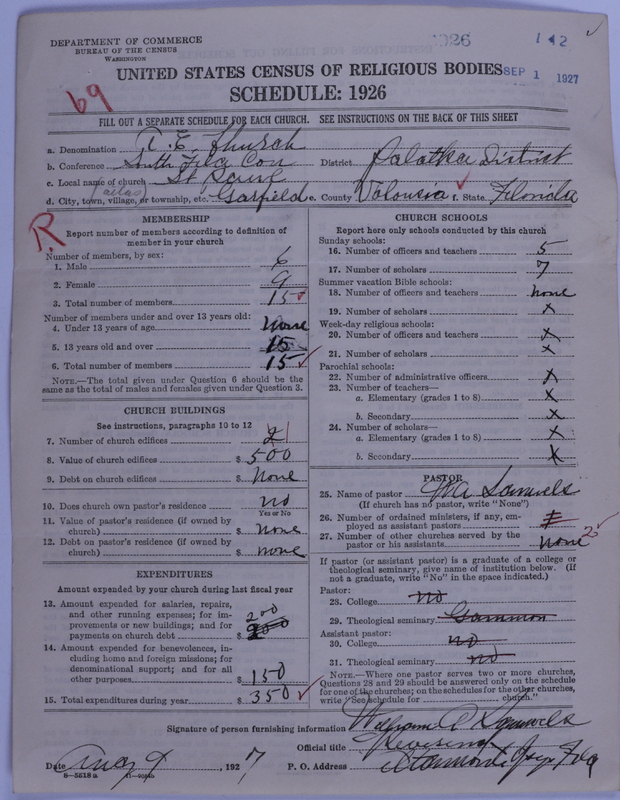 DEPARTMENT OF COMMERCE
BUREAU OF THE CENSUS
WASHINGTON
1926
142
UNITED STATES CENSUS OF RELIGIOUS BODIES
SEP 1 1927
69
SCHEDULE: 1926
FILL OUT A SEPARATE SCHEDULE FOR EACH CHURCH. SEE INSTRUCTIONS ON THE BACK OF THIS SHEET
a. Denomination Church
b. Conference South Fla Con District Palatka District
c. Local name of church St Paul
d. City, town, village, or township, etc. Garfield e. County Volousia f. State Florida
R
MEMBERSHIP
Report number of members according to definition of member in your church
Number of members, by sex:
1. Male 6
2. Female 9
3. Total number of members 15
Number of members under and over 13 years old:
4. Under 13 years of age None
5. 13 years old and over 15
6. Total number of members 15
NOTE.—The total given under Question 6 should be the same as the total of males and females given under Question 3.
CHURCH BUILDINGS
See instructions, paragraphs 10 to 12
7. Number of church edifices 2 1
8. Value of church edifices $ 500
9. Debt on church edifices $ None
10. Does church own pastor's residence no
Yes or No
11. Value of pastor's residence (if owned by church) $ None
12. Debt on pastor's residence (if owned by church) $ none
EXPENDITURES
Amount expended by your church during last fiscal year
13. Amount expended for salaries, repairs, and other running expenses; for improvements or new buildings; and for payments on church debt $ 200
14. Amount expended for benevolences, including home and foreign missions; for denominational support; and for all other purposes $ 150
15. Total expenditures during year $ 350
CHURCH SCHOOLS
Report here only schools conducted by this church
Sunday schools:
16. Number of officers and teachers 5
17. Number of scholars 7
Summer vacation Bible schools:
18. Number of officers and teachers none
19. Number of scholars x
Week-day religious schools:
20. Number of officers and teachers x
21. Number of scholars x
Parochial schools:
22. Number of administrative officers x
23. Number of teachers—
a. Elementary (grades 1 to 8) x
b. Secondary x
24. Number of scholars—
a. Elementary (grades 1 to 8) x
b. Secondary x
PASTOR
25. Name of pastor WA Samuels
(If church has no pastor, write "None")
26. Number of ordained ministers, if any, employed as assistant pastors
27. Number of other churches served by the pastor or his assistants None
If pastor (or assistant pastor) is a graduate of a college or theological seminary, give name of institution below. (If not a graduate, write "No" in the space indicated.)
Pastor:
28. College no
29. Theological seminary Gammon
Assistant pastor:
30. College no
31. Theological seminary no
NOTE.—Where one pastor serves two or more churches, Questions 28 and 29 should be answered only on the schedule for one of the churches; on the schedules for the other churches, write "See schedule for church."
Signature of person furnishing information William A Samuels
Official title
Date Aug 9, 1927 P. O. Address